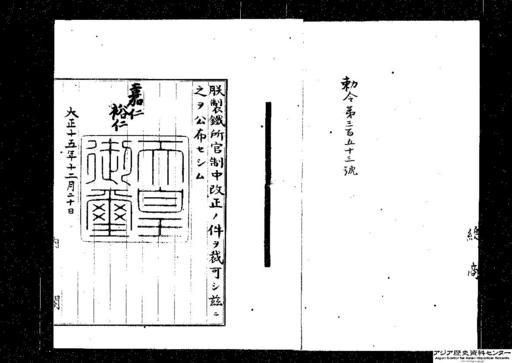 勅令第三百五十三號
總
商
朕製鐵所官制中改正ノ件ヲ裁可シ茲ニ
之ヲ公布セシム
嘉仁
裕仁
天皇
御璽
大正十五年十二月二十日
アジア歴史資料センター
Japan Center for Asian Historical Records